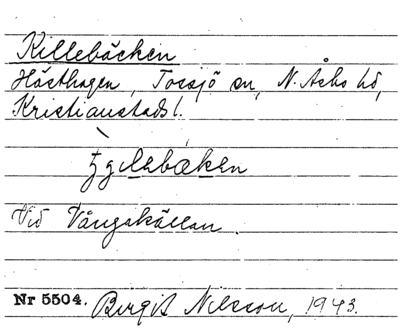 Killebäcken
Hästhagen, Tossjö sn, N. Åsbo hd,
Kristianstads l.
Vid Vångakällan.
Nr 5504. Birgit Nilsson, 1943.